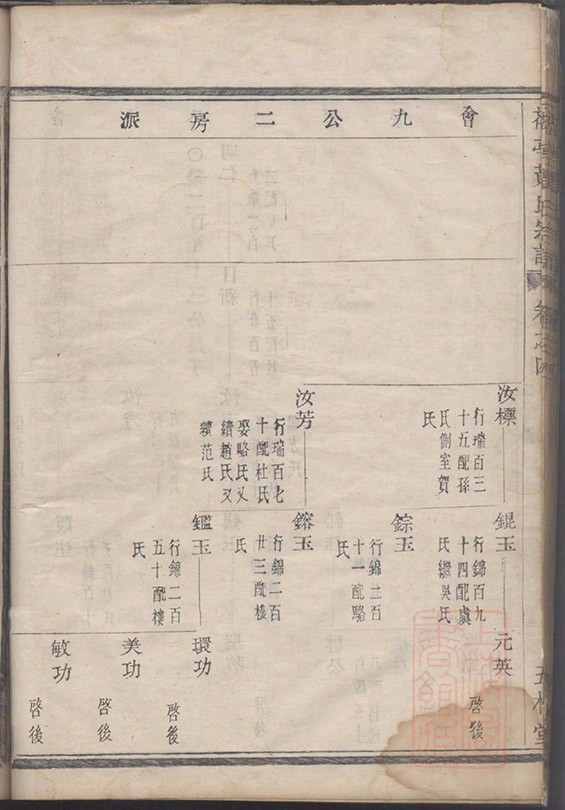 會九公二房派
汝標
行瑞百三
十五配孫
氏側室賀
氏
錕玉
行錦百九
十四配虞
氏繼吳氏
元英
啓後
錝玉
行錦二百
十一配略
氏
汝芳
行瑞百七
十配杜氏
娶略氏又
續趙氏又
續范氏
鎔玉
行錦二百
廿三配樓
氏
鑑玉
行錦二百
五十配樓
氏
環功
啓後
美功
啓後
敏功
啓後
氏宗譜
卷之四
五 堂